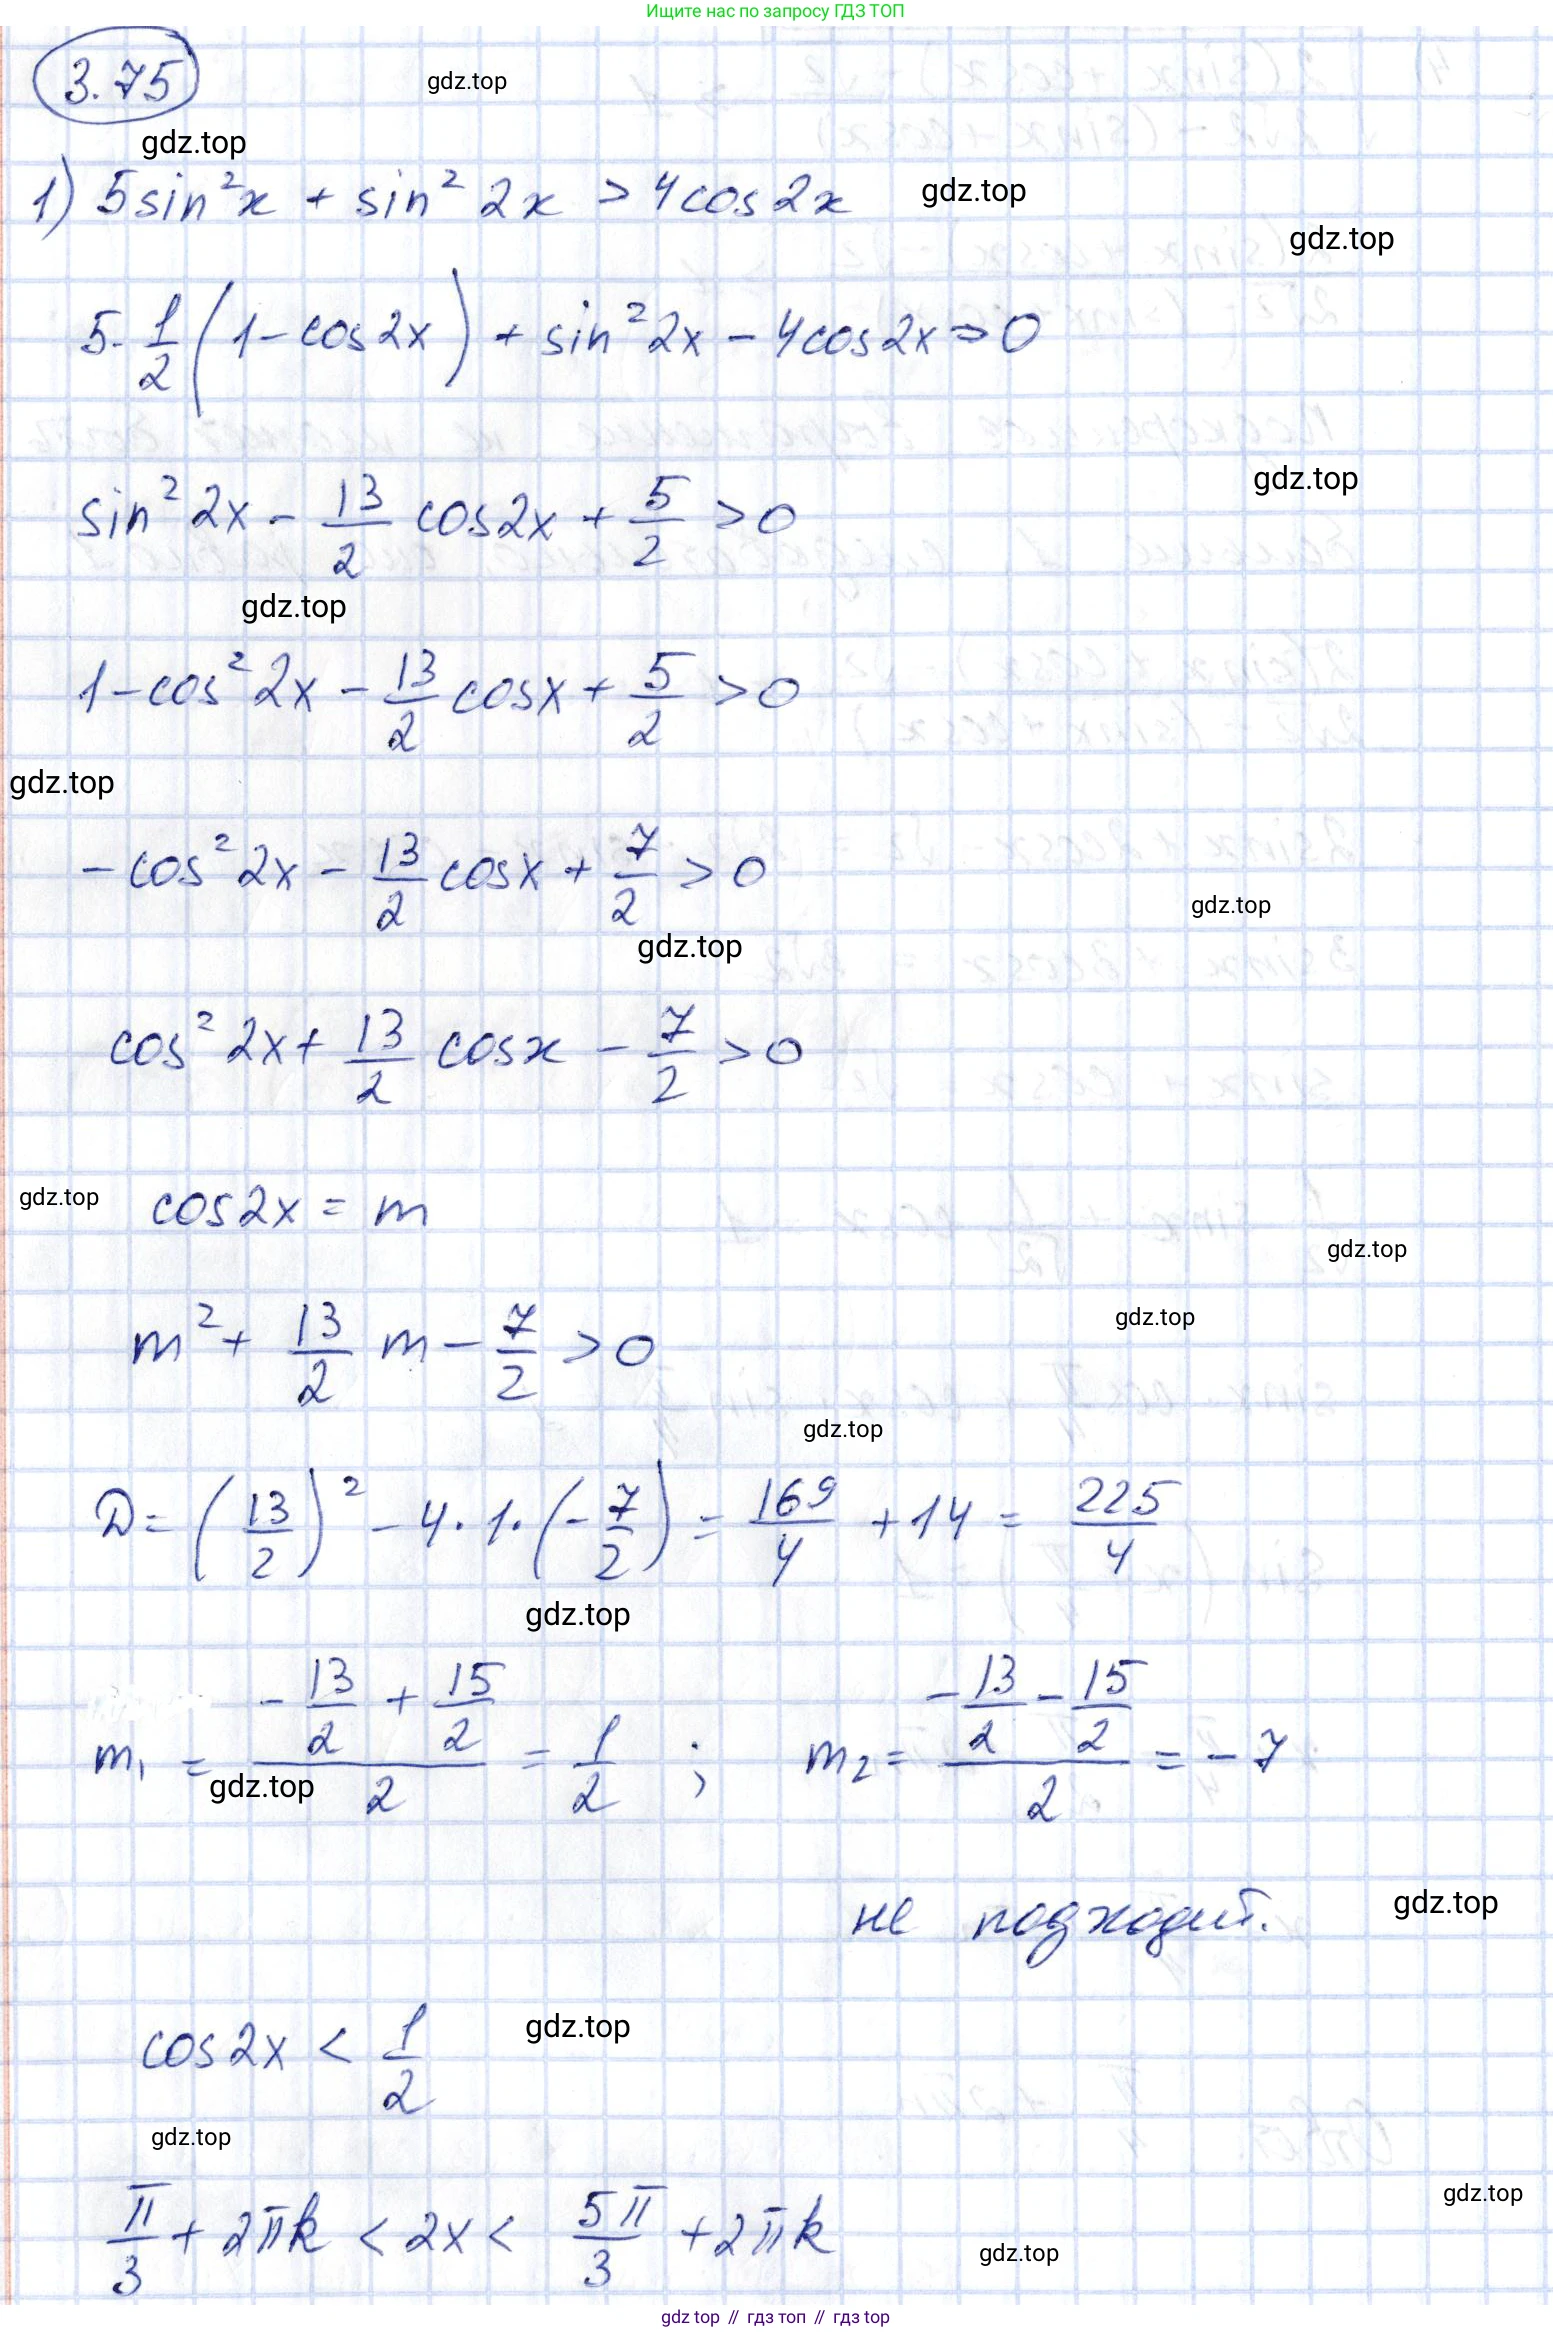 Ищите нас по запросу ГДЗ ТОП
3.75
gdz.top
gdz.top
1) 5sin²x + sin² 2x > 4cos2x
gdz.top
gdz.top
5·1/2(1-cos2x)+sin²2x-4cos2x>0
gdz.top
sin² 2x - 13/2 cos2x + 5/2 > 0
gdz.top
1-cos²2x - 13/2 cosx + 5/2 > 0
gdz.top
-cos²2x - 13/2 cosx + 7/2 > 0
gdz.top
gdz.top
cos² 2x + 13/2 cosx - 7/2 > 0
gdz.top
cos2x = m
gdz.top
gdz.top
m² + 13/2 m - 7/2 > 0
gdz.top
D = (13/2)² - 4·1·(-7/2) = 169/4 + 14 = 225/4
gdz.top
m₁ = (-13/2 + 15/2)/2 = 1/2 ; m₂ = (-13/2 - 15/2)/2 = -7
gdz.top
не подходит.
gdz.top
cos2x < 1/2
gdz.top
gdz.top
gdz.top
π/3 + 2πk < 2x < 5π/3 + 2πk
gdz.top
gdz top // гдз топ // gdz top